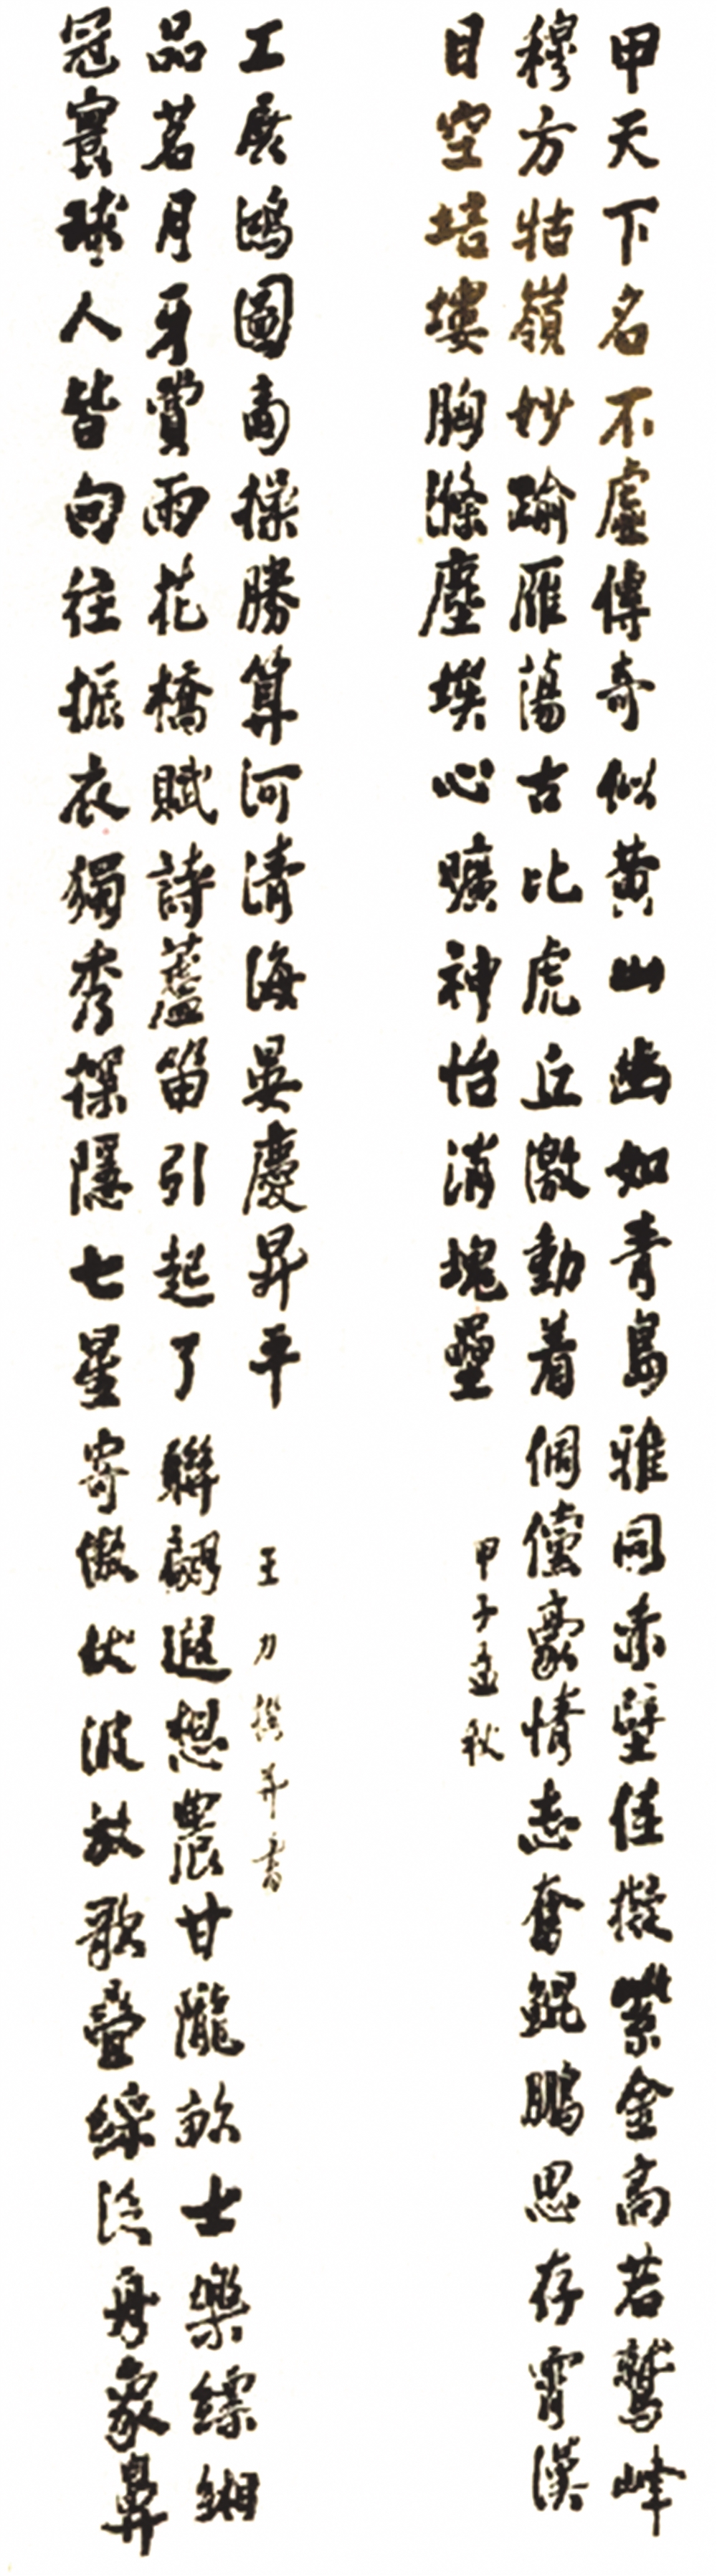 甲天下名不虛傳奇似黃山幽如青島雅同赤壁佳擬紫金高若鷲峰
穆方牯嶺妙踰雁蕩古比虎丘激動着倜儻豪情志奮鯤鵬思存霄漢
目空培塿胸滌塵埃心曠神怡消塊壘
甲子孟秋
冠寰球人皆向往振衣獨秀探隱七星寄傲伏波放歌疊綵泛舟象鼻
品茗月牙賞雨花橋賦詩蘆笛引起了聯翩遐想農甘隴畝士樂縹緗
工展鴻圖商操勝算河清海晏慶昇平
王力撰并書